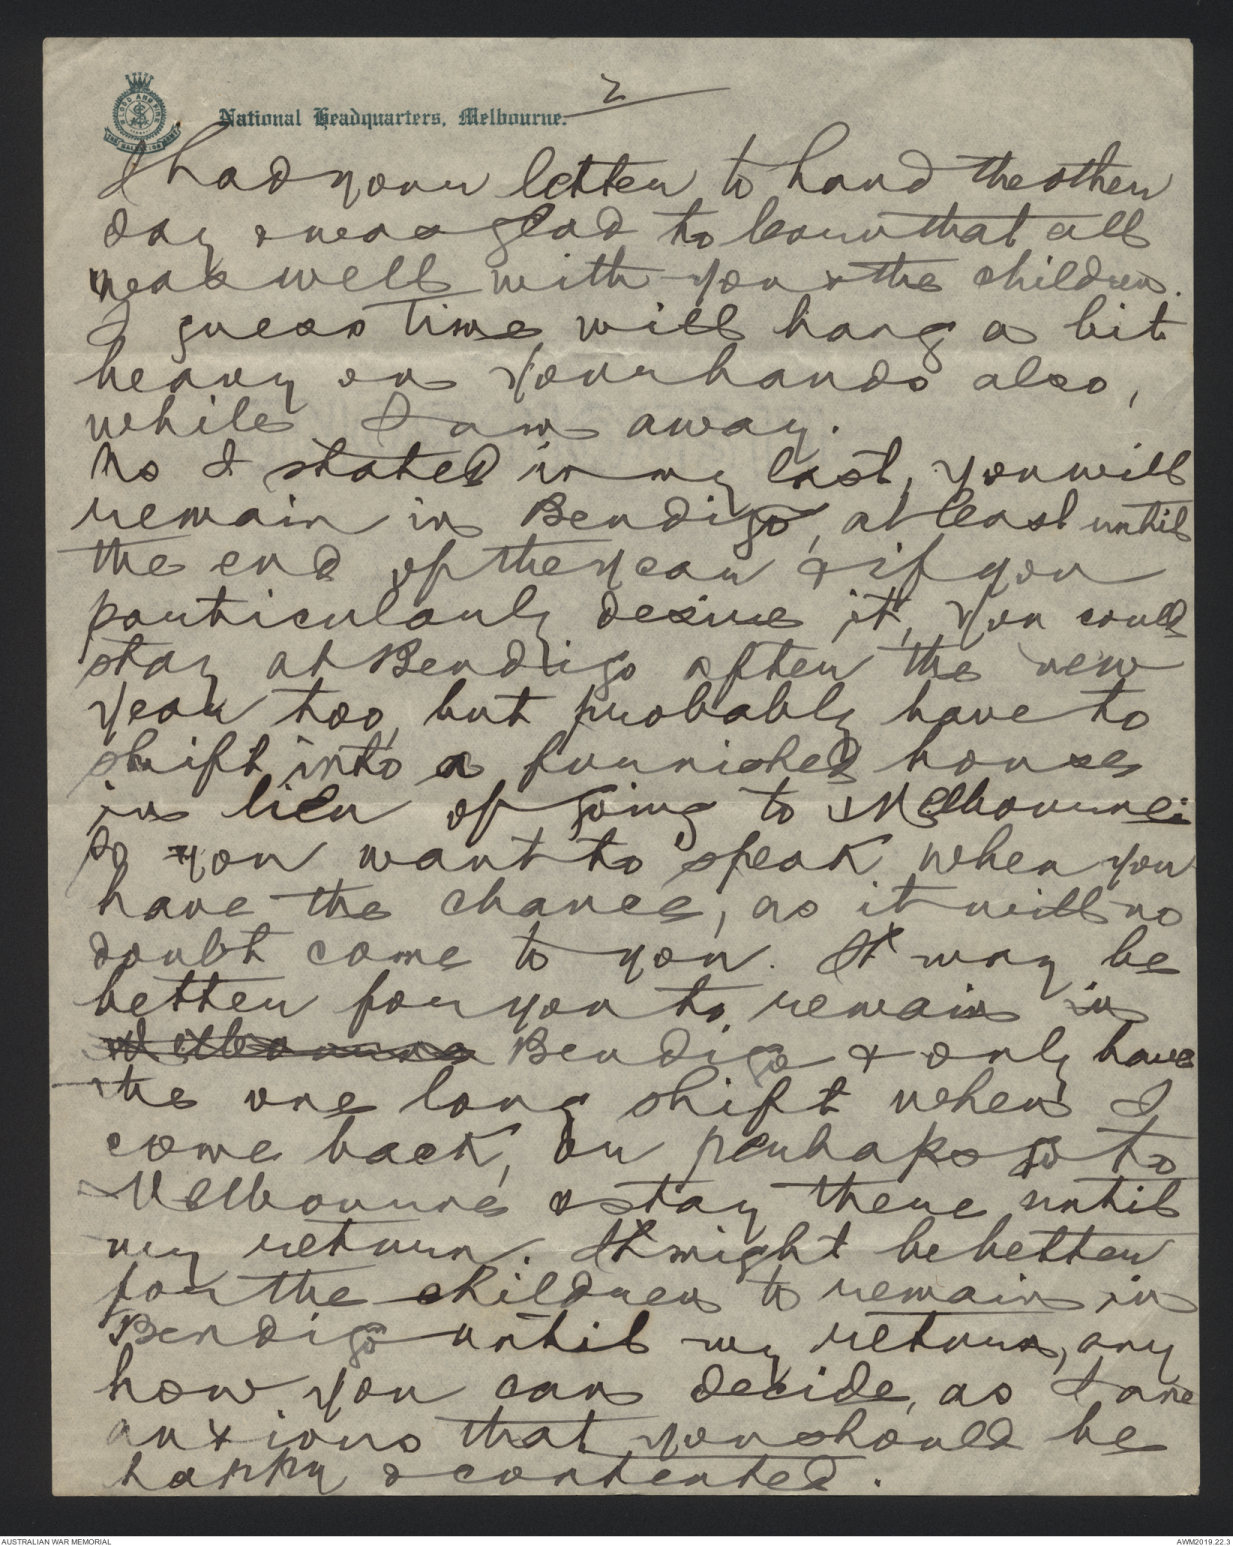 2
National Headquarters, Melbourne.
BLOOD AND FIRE
THE SALVATION ARMY
I had your letter to hand the other
day & was glad to learn that all
was well with you & the children.
I guess time will hang a bit
heavy on your hands also,
while I am away.
As I stated in my last, you will
remain in Bendigo, at least until
the end of the year & if you
particularly desire it, you could
stay at Bendigo after the new
year too, but probably have to
shift into a furnished house
in lieu of going to Melbourne:
Do you want to speak when you
have the chance, as it will no
doubt come to you. It may be
better for you to remain in
Melbourne Bendigo & only have
the one long shift when I
come back, or perhaps go to
Melbourne & stay there until
my return. It might be better
for the children to remain in
Bendigo until my return, any
how you can decide, as I am
anxious that you should be
happy & contented.
AUSTRALIAN WAR MEMORIAL
AWM2019.22.3